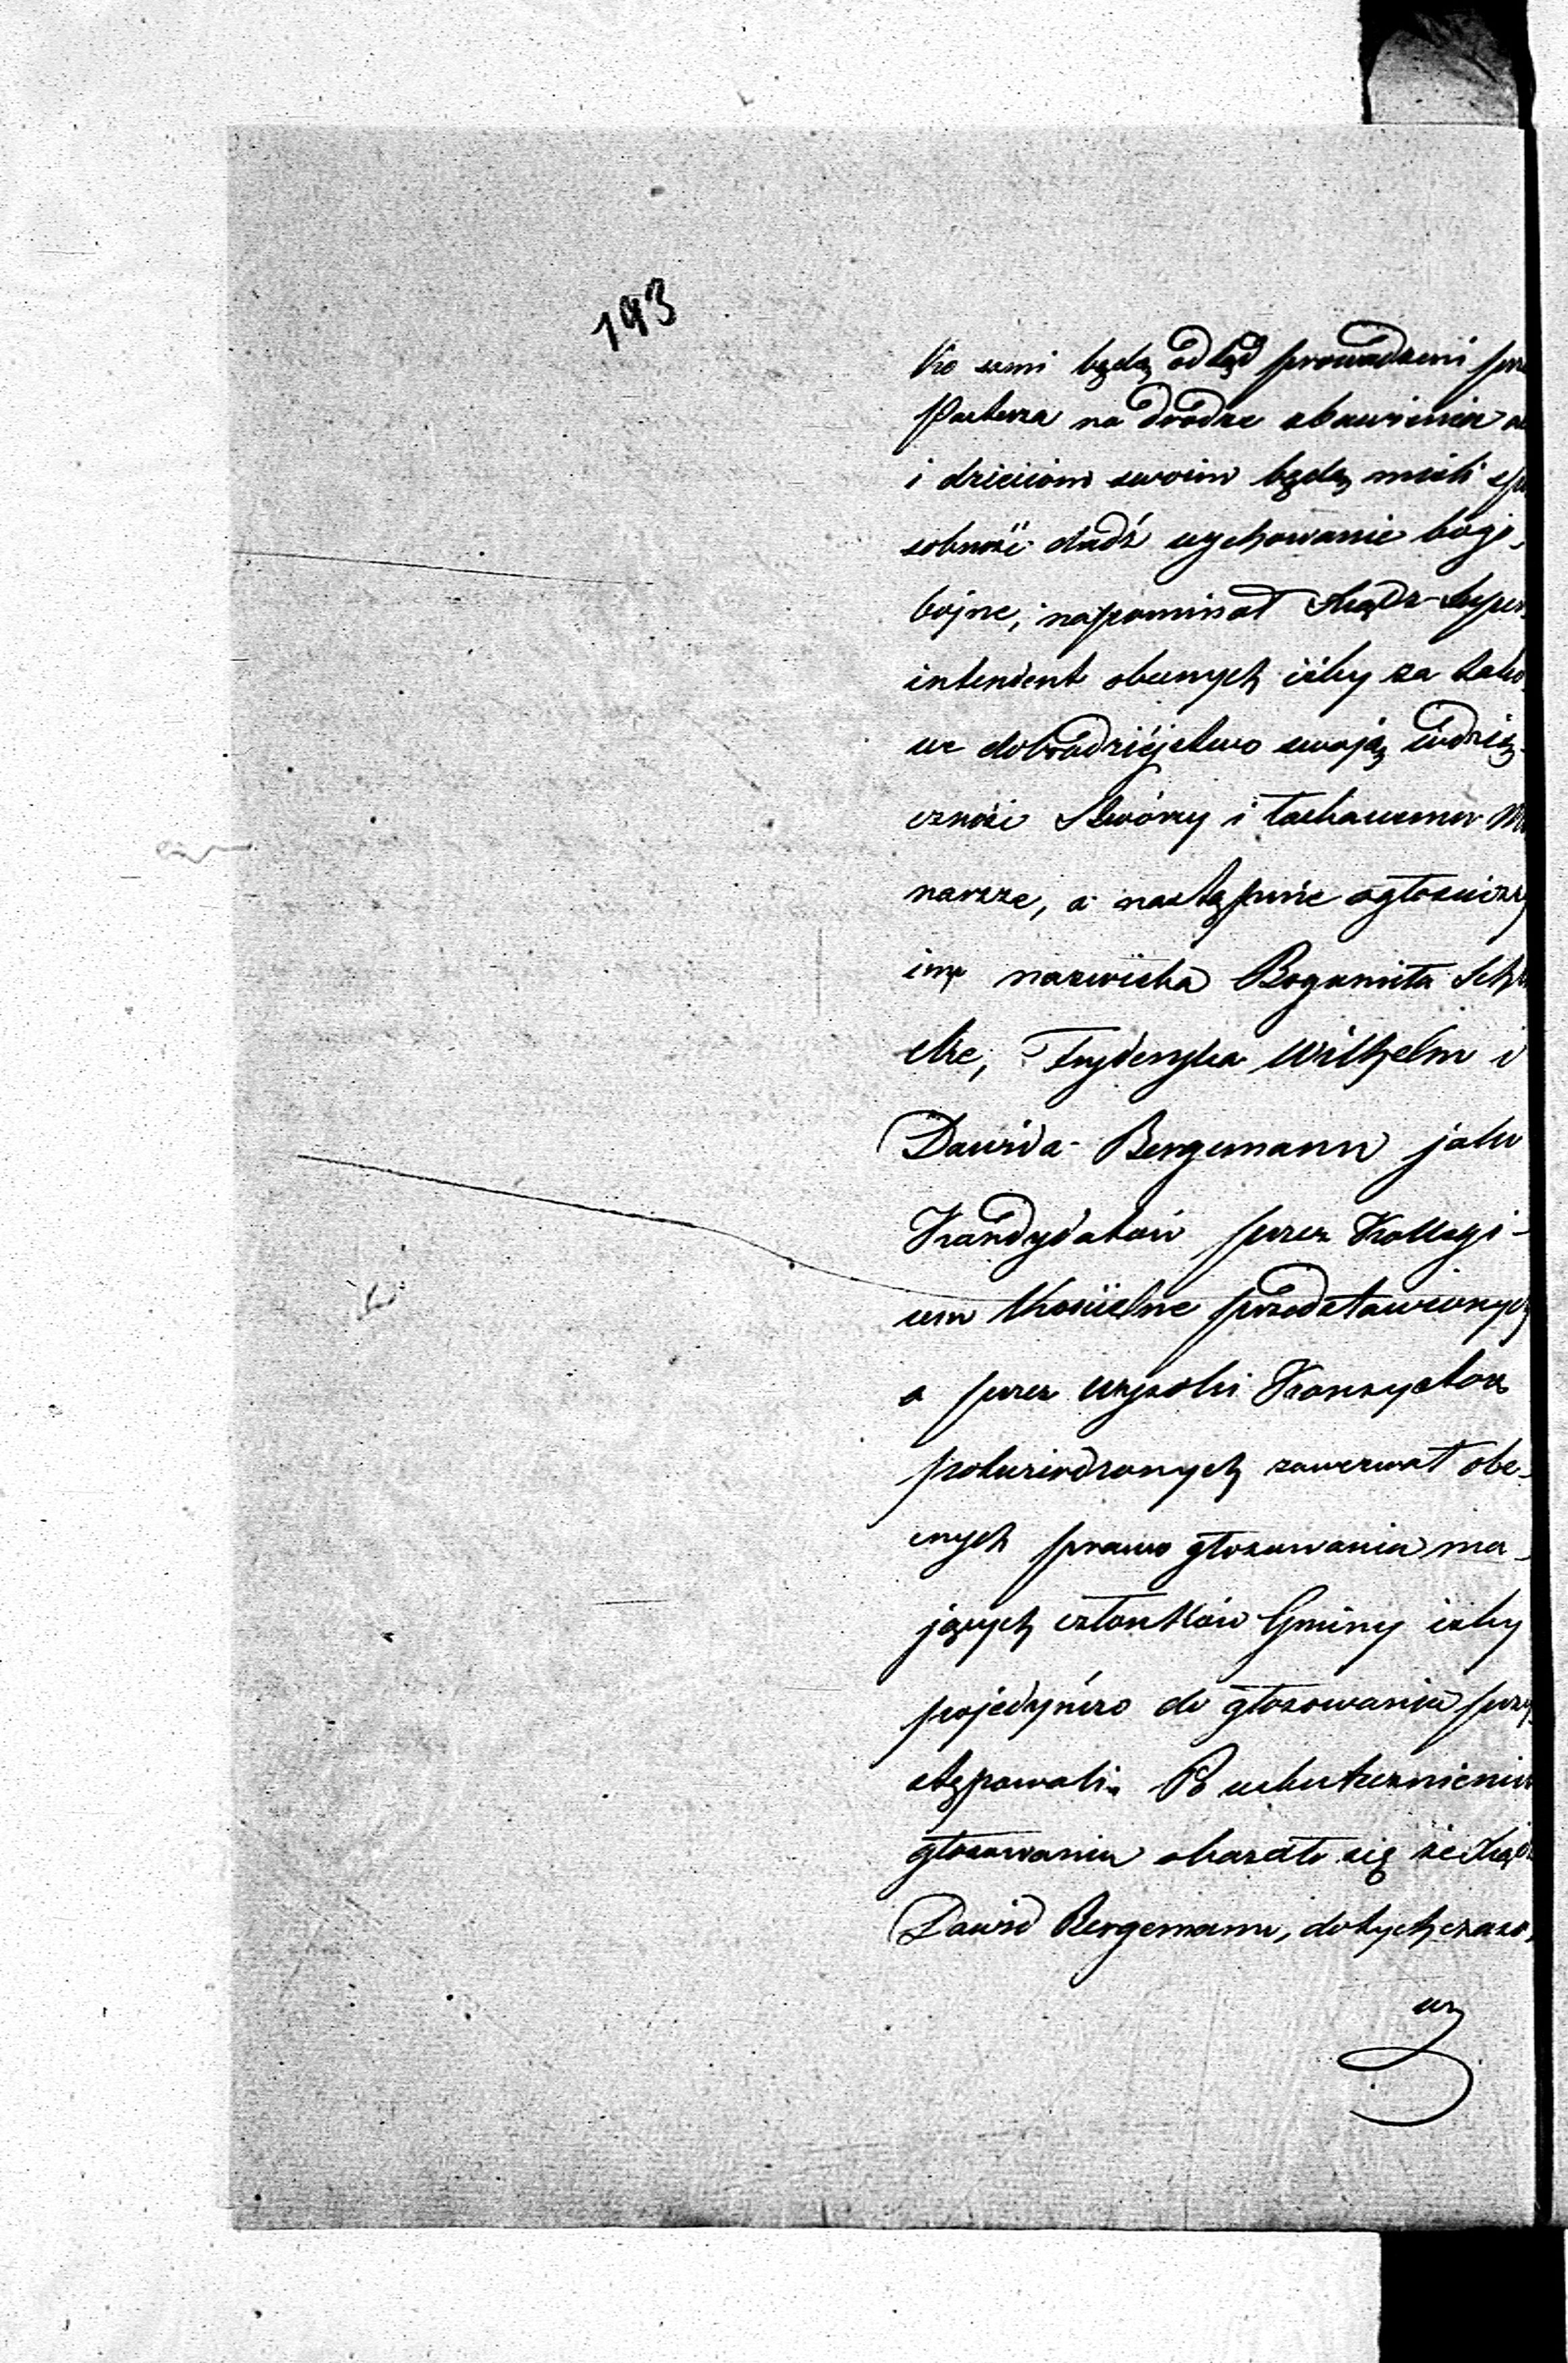 193
ko sami będą odtąd prowadzeni prze
Pasterza na drodze zbawienia al
i dzieciom swoim będą mieli spo
sobność dadź wychowanie bogo-
bojne, napominał Xiądz Super-
intendent obecnych iżby za tako-
we dobrodziejstwo swoją wdzię-
czność Stwórcy i łaskawemu Mo
narsze, a następnie ogłosiwszy
im nazwiska Bogumiła Sch
elke, Fryderyka Wilhelm i
Dawida Bergemann jako
Kandydatów przez Kollegi-
um Kościelne przedstawionych
a przez wysoki Konsystorz
potwierdzonych zawezwał obe-
cnych prawo głosowania ma-
jących członków Gminy iżby
pojedyńczo do głosowania przy
stępowali. Po uskutecznieniu
głosowania okazało się że Xiądz
Dawid Bergemann, dotychczaso-
wy